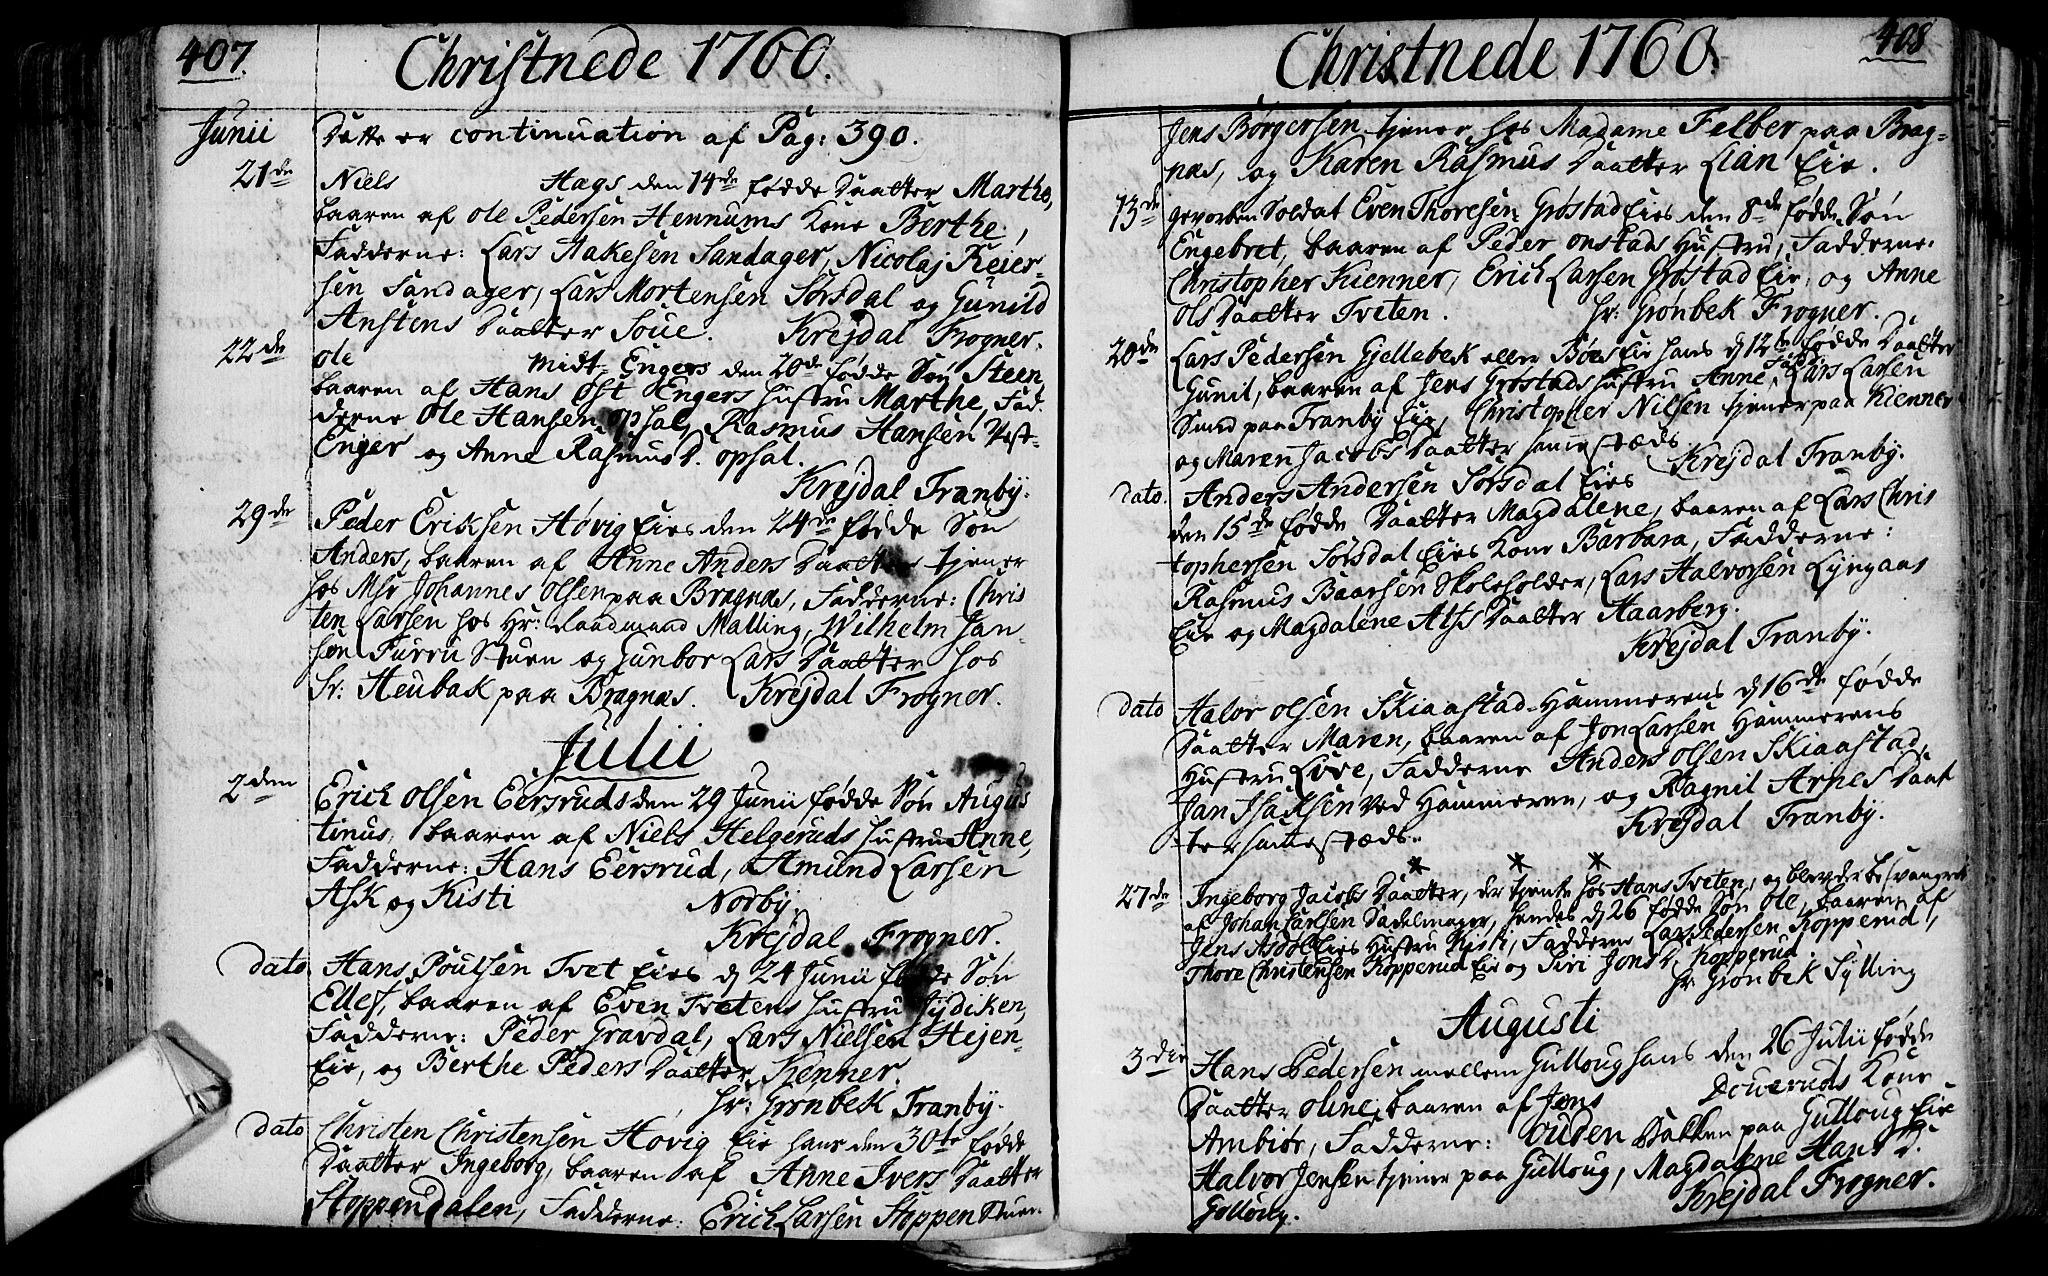 407.
Christnede 1760.
Junii
Dette er continuation af Pag: 390.
21de Niels Hags den 14de fødde Daatter Marthe,
baaren af Ole Pedersen Hennums Kone Berthe,
Fadderne: Lars Aakesen Sandager, Nicolaj Reier-
sen Sandager, Lars Mortensen Sørsdal og Gunild
Anstens Daatter Soue. Krejdal Frogner.
22de Ole Midt-Engers den 20de fødde Søn Steen
baaren af Hans Øst Engers Hustru Marthe, Fad-
derne Ole Hansen Opsal, Rasmus Hansen Vest-
Enger og Anne Rasmus D. Opsal.
Krejdal Tranby.
29de Peder Eriksen Høvig Eies den 24de fødde Søn
Anders, baaren af Anne Anders Daatter tjener
hos Msr Johannes Olsen paa Bragnæs, Fadderne: Chris
ten Larsen hos Hr: Raadmand Malling, Wilhelm Jan-
sen Furru Stuen og Gunbor Lars Daatter hos
Sr: Heubak paa Bragnæs. Krejdal Frogner.
Julii
2den Erich Olsen Eersruds den 29 Junii fødde Søn Augus
tinus, baaren af Niels Helgeruds Hustru Anne,
Fadderne: Hans Eersrud, Amund Larsen
Ask og Kisti Norby.
Krejdal Frogner.
dato Hans Poulsen Tvet Eies d 24 Junii fødde Søn
Ellef, baaren af Even Tvetens Hustru Jydiken,
Fadderne: Peder Gravdal, Lars Nielsen Hejen-
Eie, og Berthe Peders Daatter Kenner.
Hr: Grønbek Tranby.
dato Christen Christensen Høvig Eie hans den 30te fødde
Daatter Ingeborg, baaren af Anne Ivers Daatter
Stoppendalen, Fadderne: Erich Larsen Stoppen Stuen
408
Christnede 1760.
Jens Børgersen tjener hos Madame Felber paa Brag-
næs, og Karen Rasmus Daatter Lian Eie.
13de gevorben Soldat Even Thoresen Grøstad Eies den 8de fødde Søn
Engebret, baaren af Peder Onstads Hustru, Fadderne:
Christopher Kienner, Erich Larsen Grøstad Eie, og Anne
Ols Daatter Tveten. Hr: Grønbek Frogner.
20de Lars Pedersen Gjellebek eller Bøes Eie hans d 12te fødde Daatter
Gunil, baaren af Jens Grøstads Hustru Anne, Fadd: Lars Larsen
Smed paa Tranby Eie, Christopher Nilsen tjener paa Kienner
og Maren Jacobs Daatter sammestæds. Krejdal Tranby.
dato. Anders Andersen Sørsdal Eies
den 15de fødde Daatter Magdalene, baaren af Lars Chris
tophersen Sørsdal Eies Kone Barbara, Fadderne:
Rasmus Baarsen Skoleholder, Lars Halvorsen Lyngaas
Eie og Magdalene Alfs Daatter Haarberg.
Krejdal Tranby.
dato Halvor Olsen Skiaastad-Hammerens d 16de fødde
Daatter Maren, baaren af Jon Larsen Hammerens
Hustru Live, Fadderne Anders Olsen Skiaastad,
Jan Isaksen ved Hammeren, og Ragnil Arnes Daat
ter sammestæds. Krejdal Tranby.
* * *
27de Ingeborg Jacobs Daatter, der tjente hos Hans Tveten, og blev der besvangret
af Johan Carlsen Sadelmager, hendes d 26 fødde Søn Ole, baaren af
Jens Asdøl Eies Hustru Kisti, Fadderne Lars Pedersen Kopperud,
Thore Christensen Kopperud Eie og Siri Jons D. Kopperud
Hr Grønbek Sylling
Augusti
3die Hans Pedersen mellem Gulloug hans den 26 Julii fødde
Daatter Oline, baaren af Jens Doueruds Kone
Ambiør, Fadderne: Ouden Bakken paa Gulloug Eie
Halvor Jensen tjener paa Gulloug, Magdalene Hans D.
Gulloug. Krejdal Frogner.